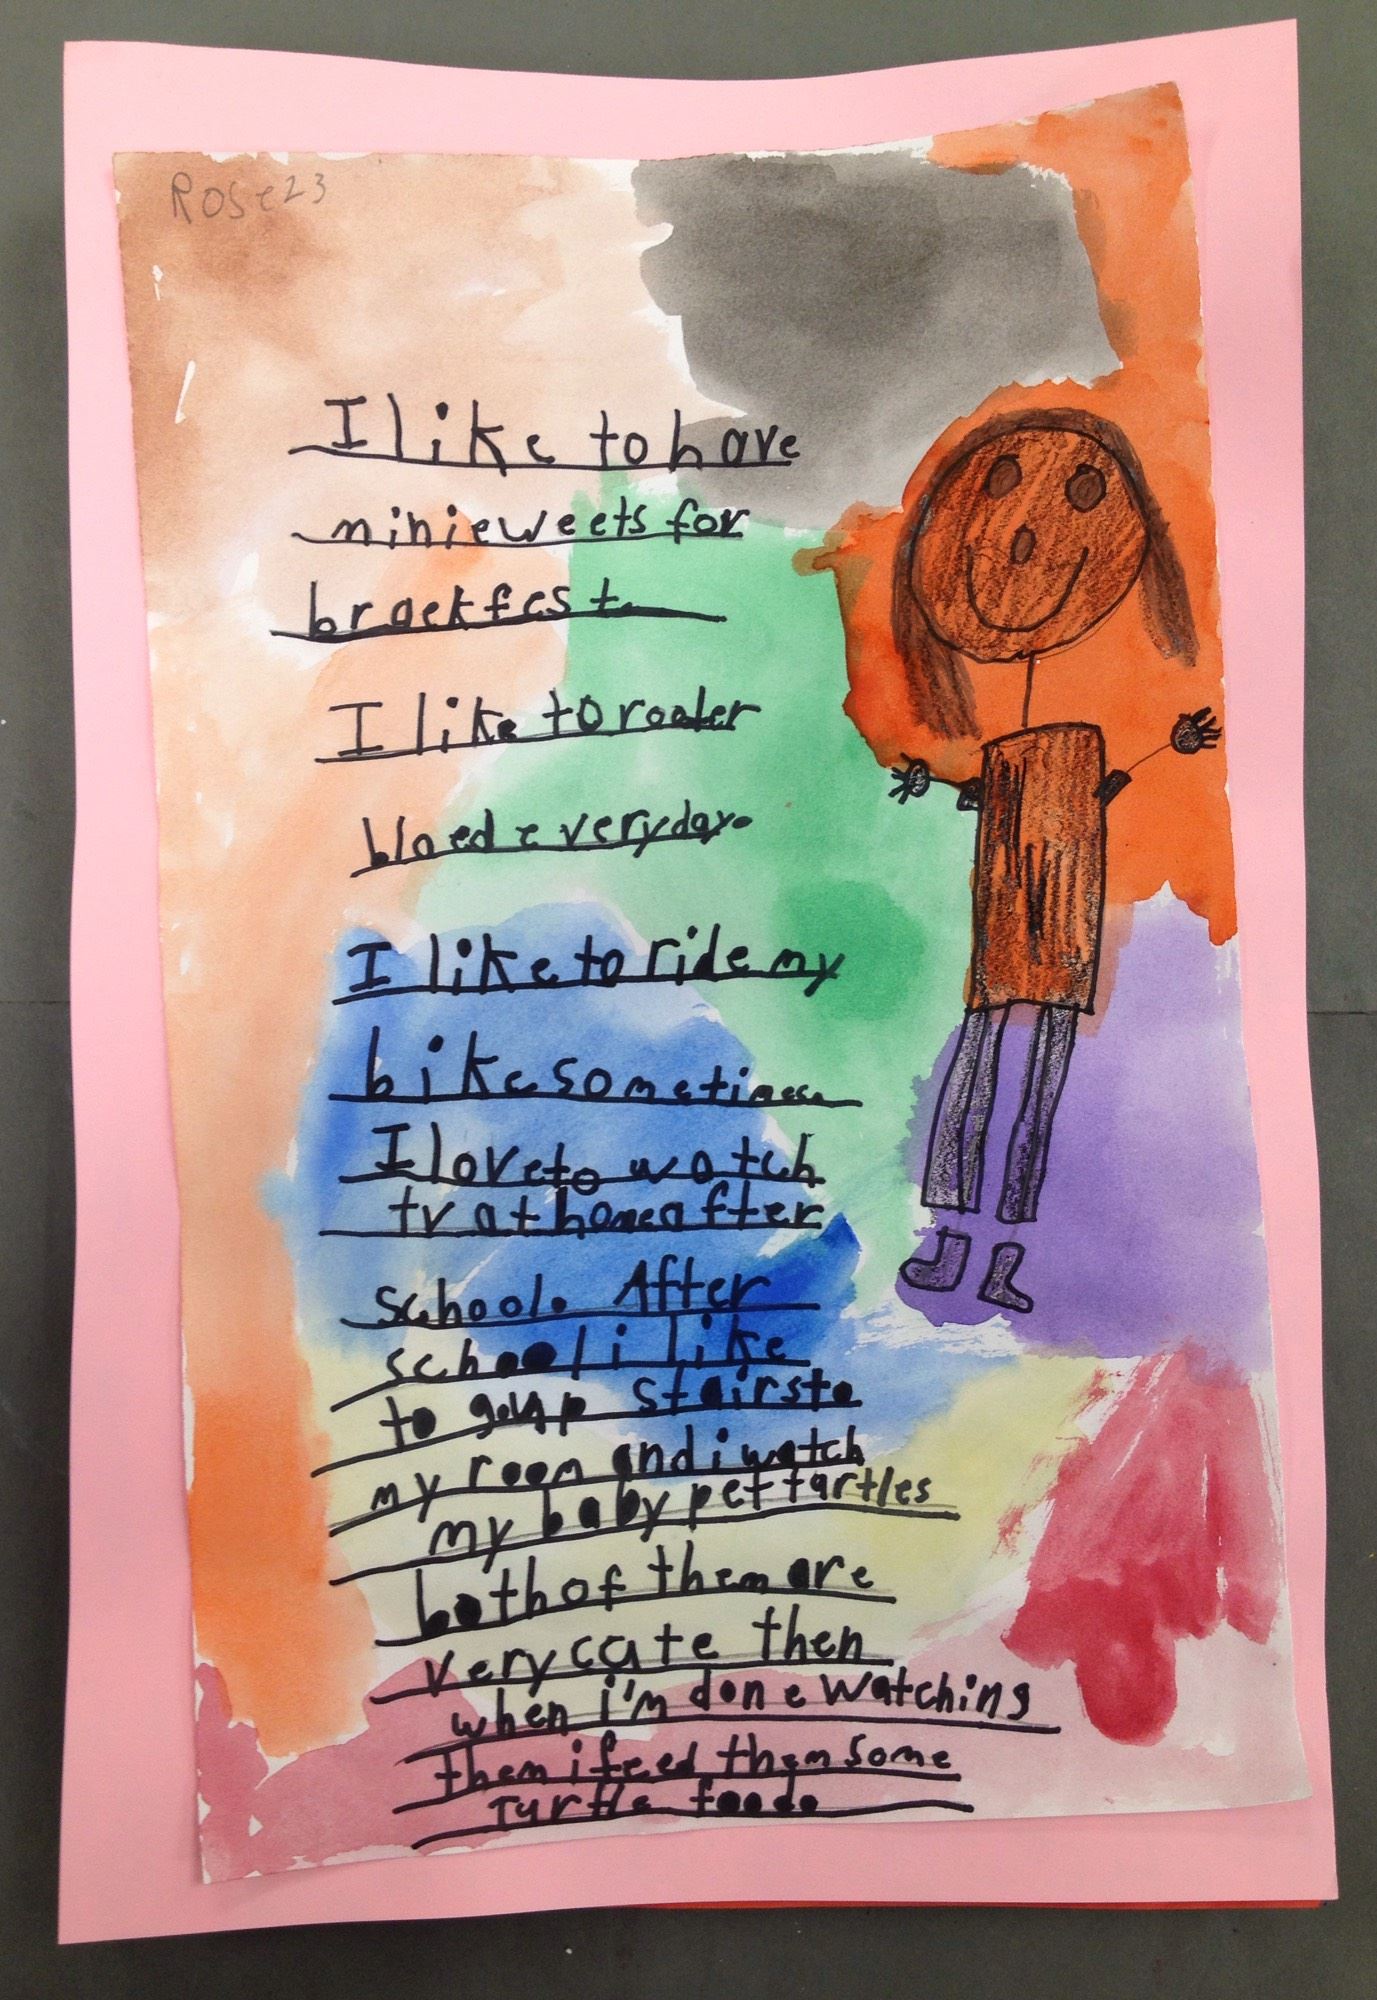 Rose 23
I like to have
minieweets for
brackfest.
I like to rooler
blaed everyday.
I like to ride my
bike sometimes.
I love to watch
tv at home after
school. After
school i like
to go up stairs to
my room and i watch
my baby pet turtles
both of them are
very cute then
when i'm done watching
them i feed them some
Turtle food.